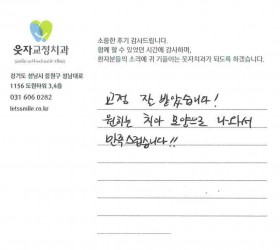 웃자교정치과
smile orthodontic clinic
경기도 성남시 중원구 성남대로
1156 도원타워 3,4층
031 606 0282
letssmile.co.kr
소중한 후기 감사드립니다.
함께 할 수 있었던 시간에 감사하며,
환자분들의 소리에 귀 기울이는 웃자치과가 되도록 하겠습니다.
교정 잘 받았습니다!
원하는 치아 모양으로 나와서
만족스럽습니다!!